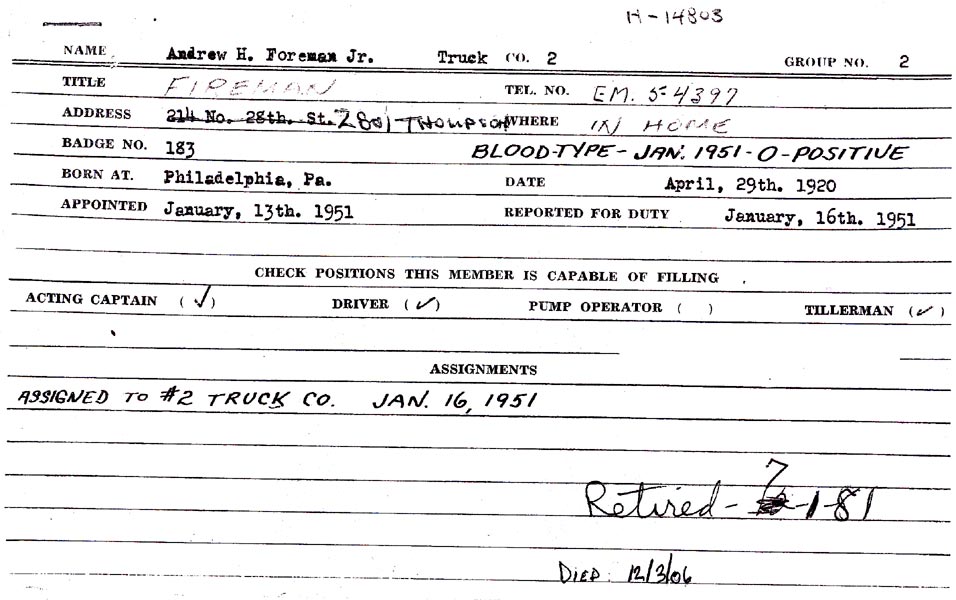 H-14803
NAME Andrew H. Foreman Jr. Truck CO. 2 GROUP NO. 2
TITLE FIREMAN TEL. NO. EM. 5-4397
ADDRESS 214 No. 28th. St. 2801 THOMPSON WHERE IN HOME
BADGE NO. 183 BLOOD-TYPE - JAN. 1951 - O-POSITIVE
BORN AT. Philadelphia, Pa. DATE April, 29th. 1920
APPOINTED January, 13th. 1951 REPORTED FOR DUTY January, 16th. 1951
CHECK POSITIONS THIS MEMBER IS CAPABLE OF FILLING
ACTING CAPTAIN (✓) DRIVER (✓) PUMP OPERATOR ( ) TILLERMAN (✓)
ASSIGNMENTS
ASSIGNED TO #2 TRUCK CO. JAN. 16, 1951
Retired - 7-1-81
DIED: 12/3/06